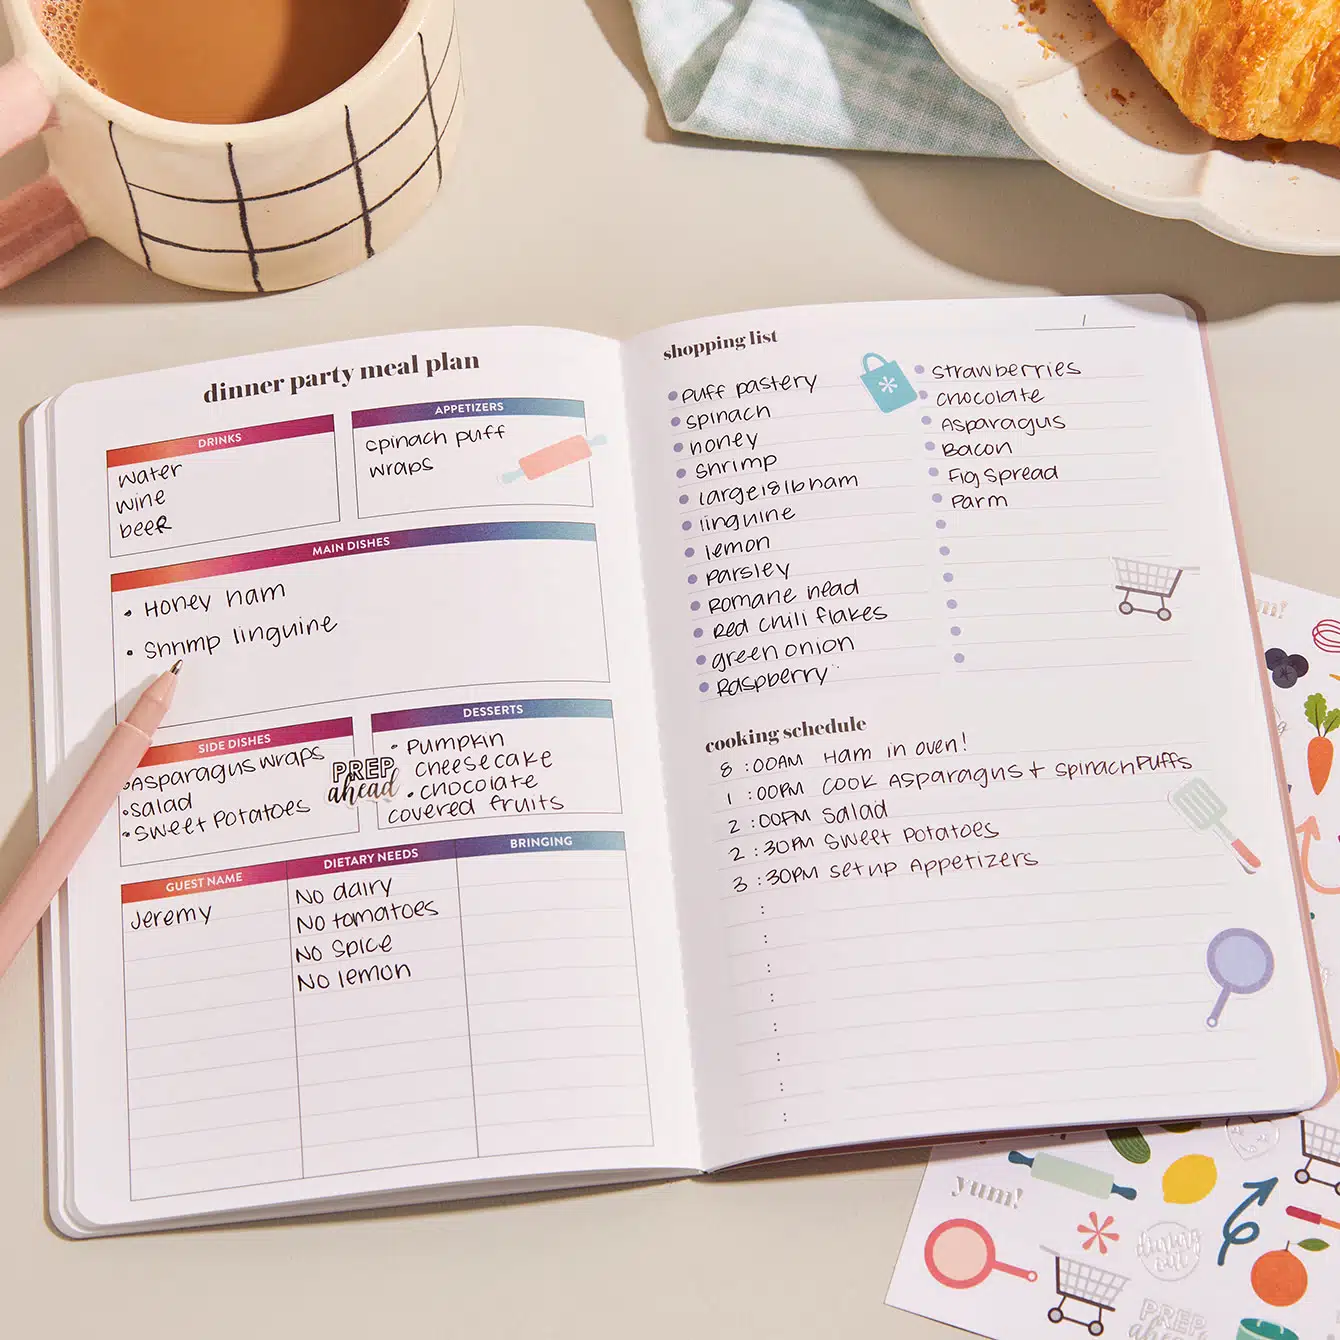 dinner party meal plan
DRINKS
water
wine
beer
APPETIZERS
spinach puff
wraps
MAIN DISHES
• Honey ham
• Shrimp linguine
SIDE DISHES
•Asparagus wraps
•salad
•Sweet Potatoes
PREP
ahead
DESSERTS
• Pumpkin
cheesecake
•chocolate
covered fruits
GUEST NAME
DIETARY NEEDS
BRINGING
Jeremy
No dairy
No tomatoes
No spice
No lemon
shopping list
1
Puff pastery
spinach
honey
shrimp
large 18lb ham
linguine
lemon
parsley
Romane head
Red chili flakes
green onion
Raspberry
strawberries
chocolate
Asparagus
Bacon
Fig Spread
Parm
cooking schedule
8 :00AM Ham in oven!
1 :00PM cook Asparagus + spinach Puffs
2 :00PM salad
2 :30PM Sweet Potatoes
3 :30PM set up Appetizers
yum!
dining
out
PREP
ahead